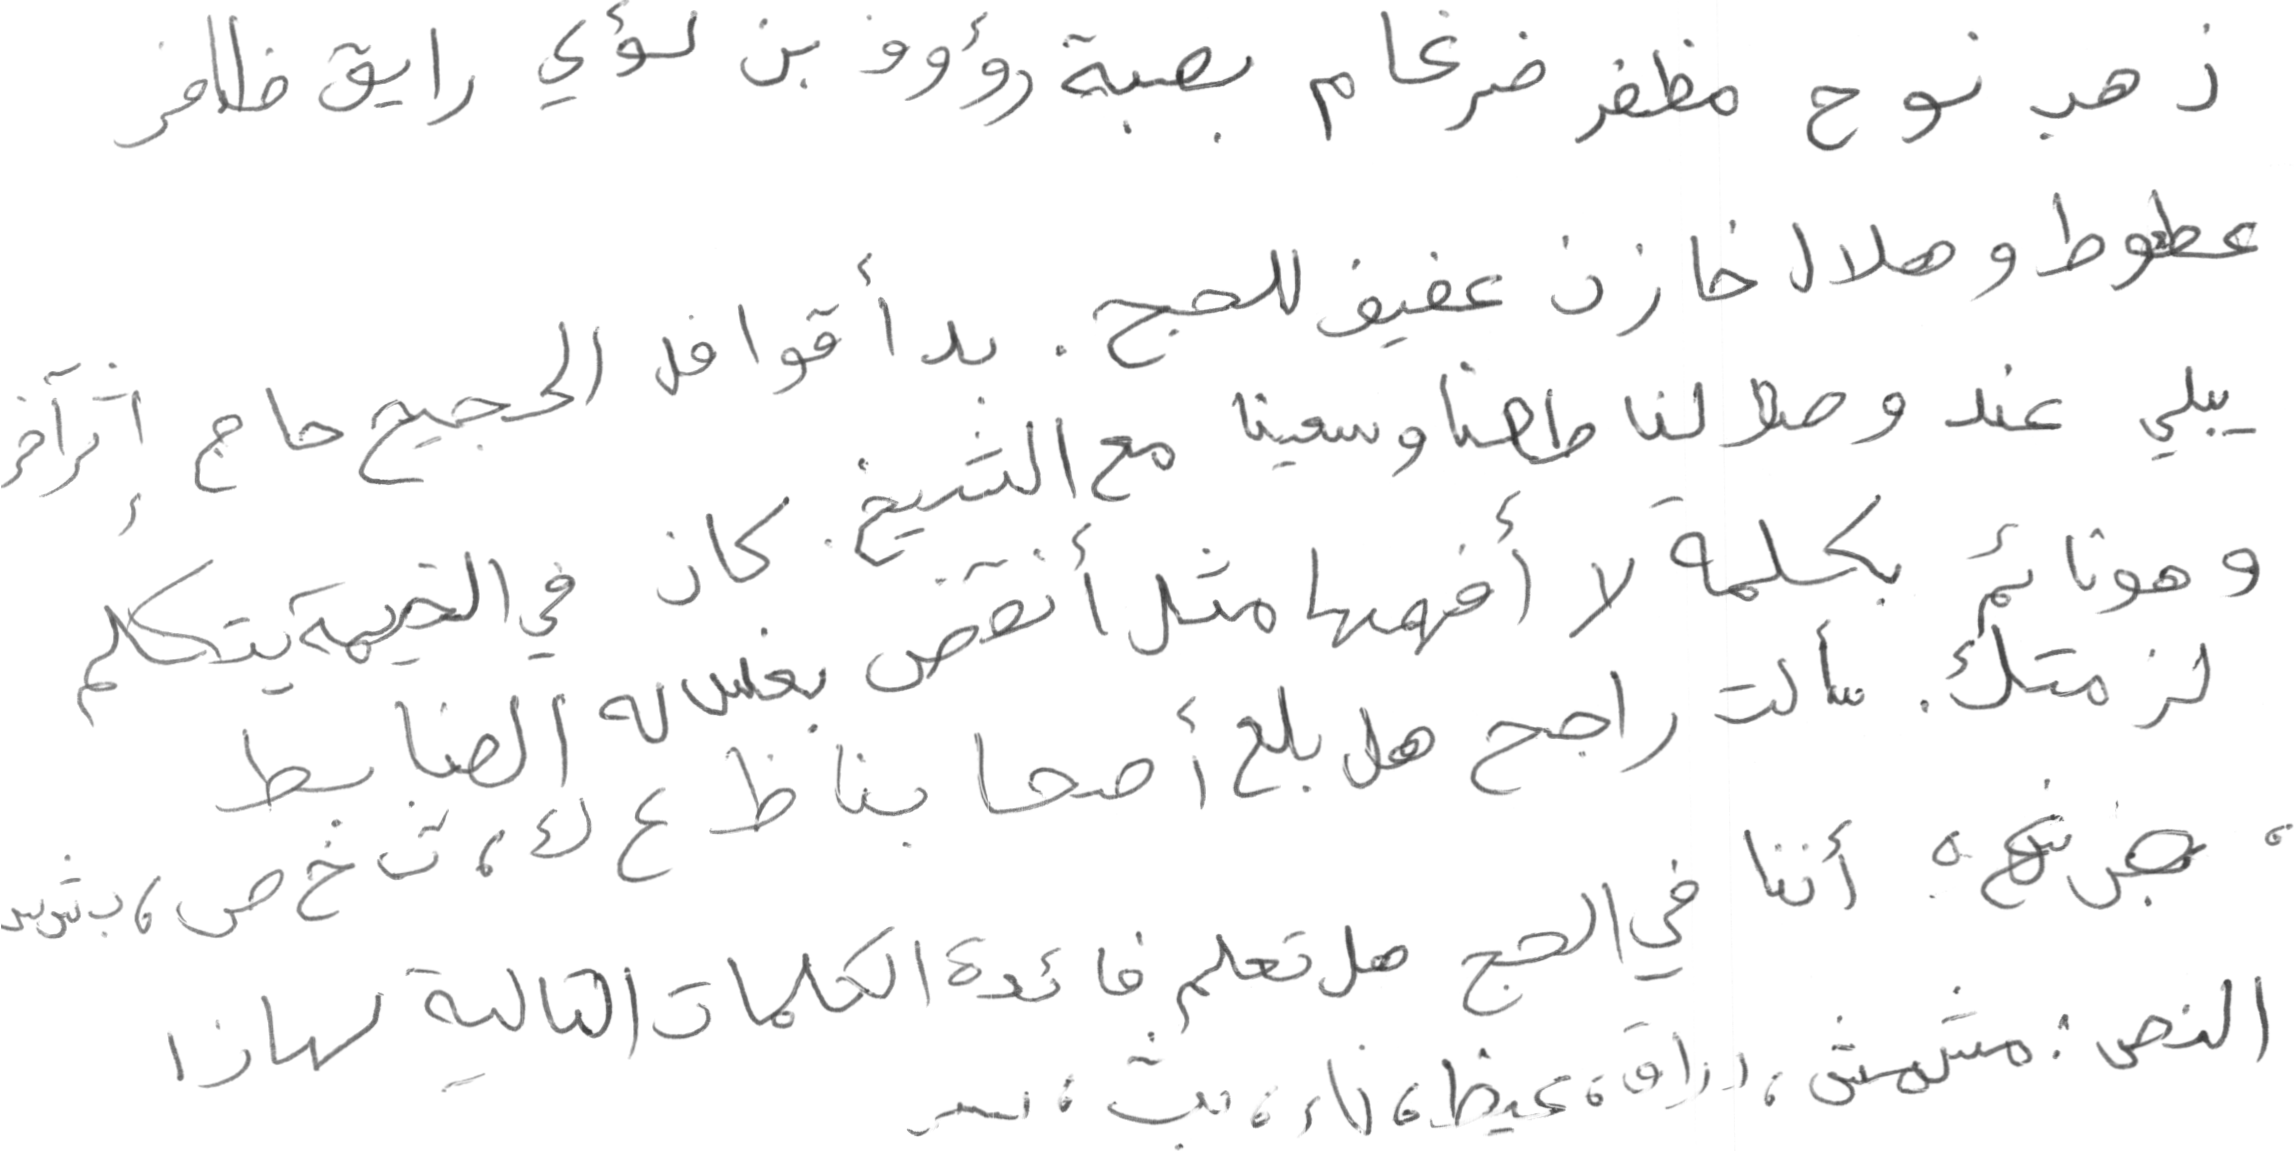 ذهب نوح مظفر ضرغام بصبة رؤوف بن لؤي رايق ظافر
عطوط و هلال خازن عفيف للحج . بدأ قوافل الحجيج حاج إثر آخر
يبلي عند وصلالنا طفنا وسعينا مع الشيخ . كان في الخيمة يتكلم
وهو نائم بكلمة لا أفهمها مثل أنقض بغلس له الضابط
لزمتك . سألت راجح هل بلع أصحابنا ظ ع ك ، ث خ ص ،
، أننا في الحج هل تعلم فائدة الكلمات التالية لهاذا
النص : مشمش ، ، غيظ ، ، ،